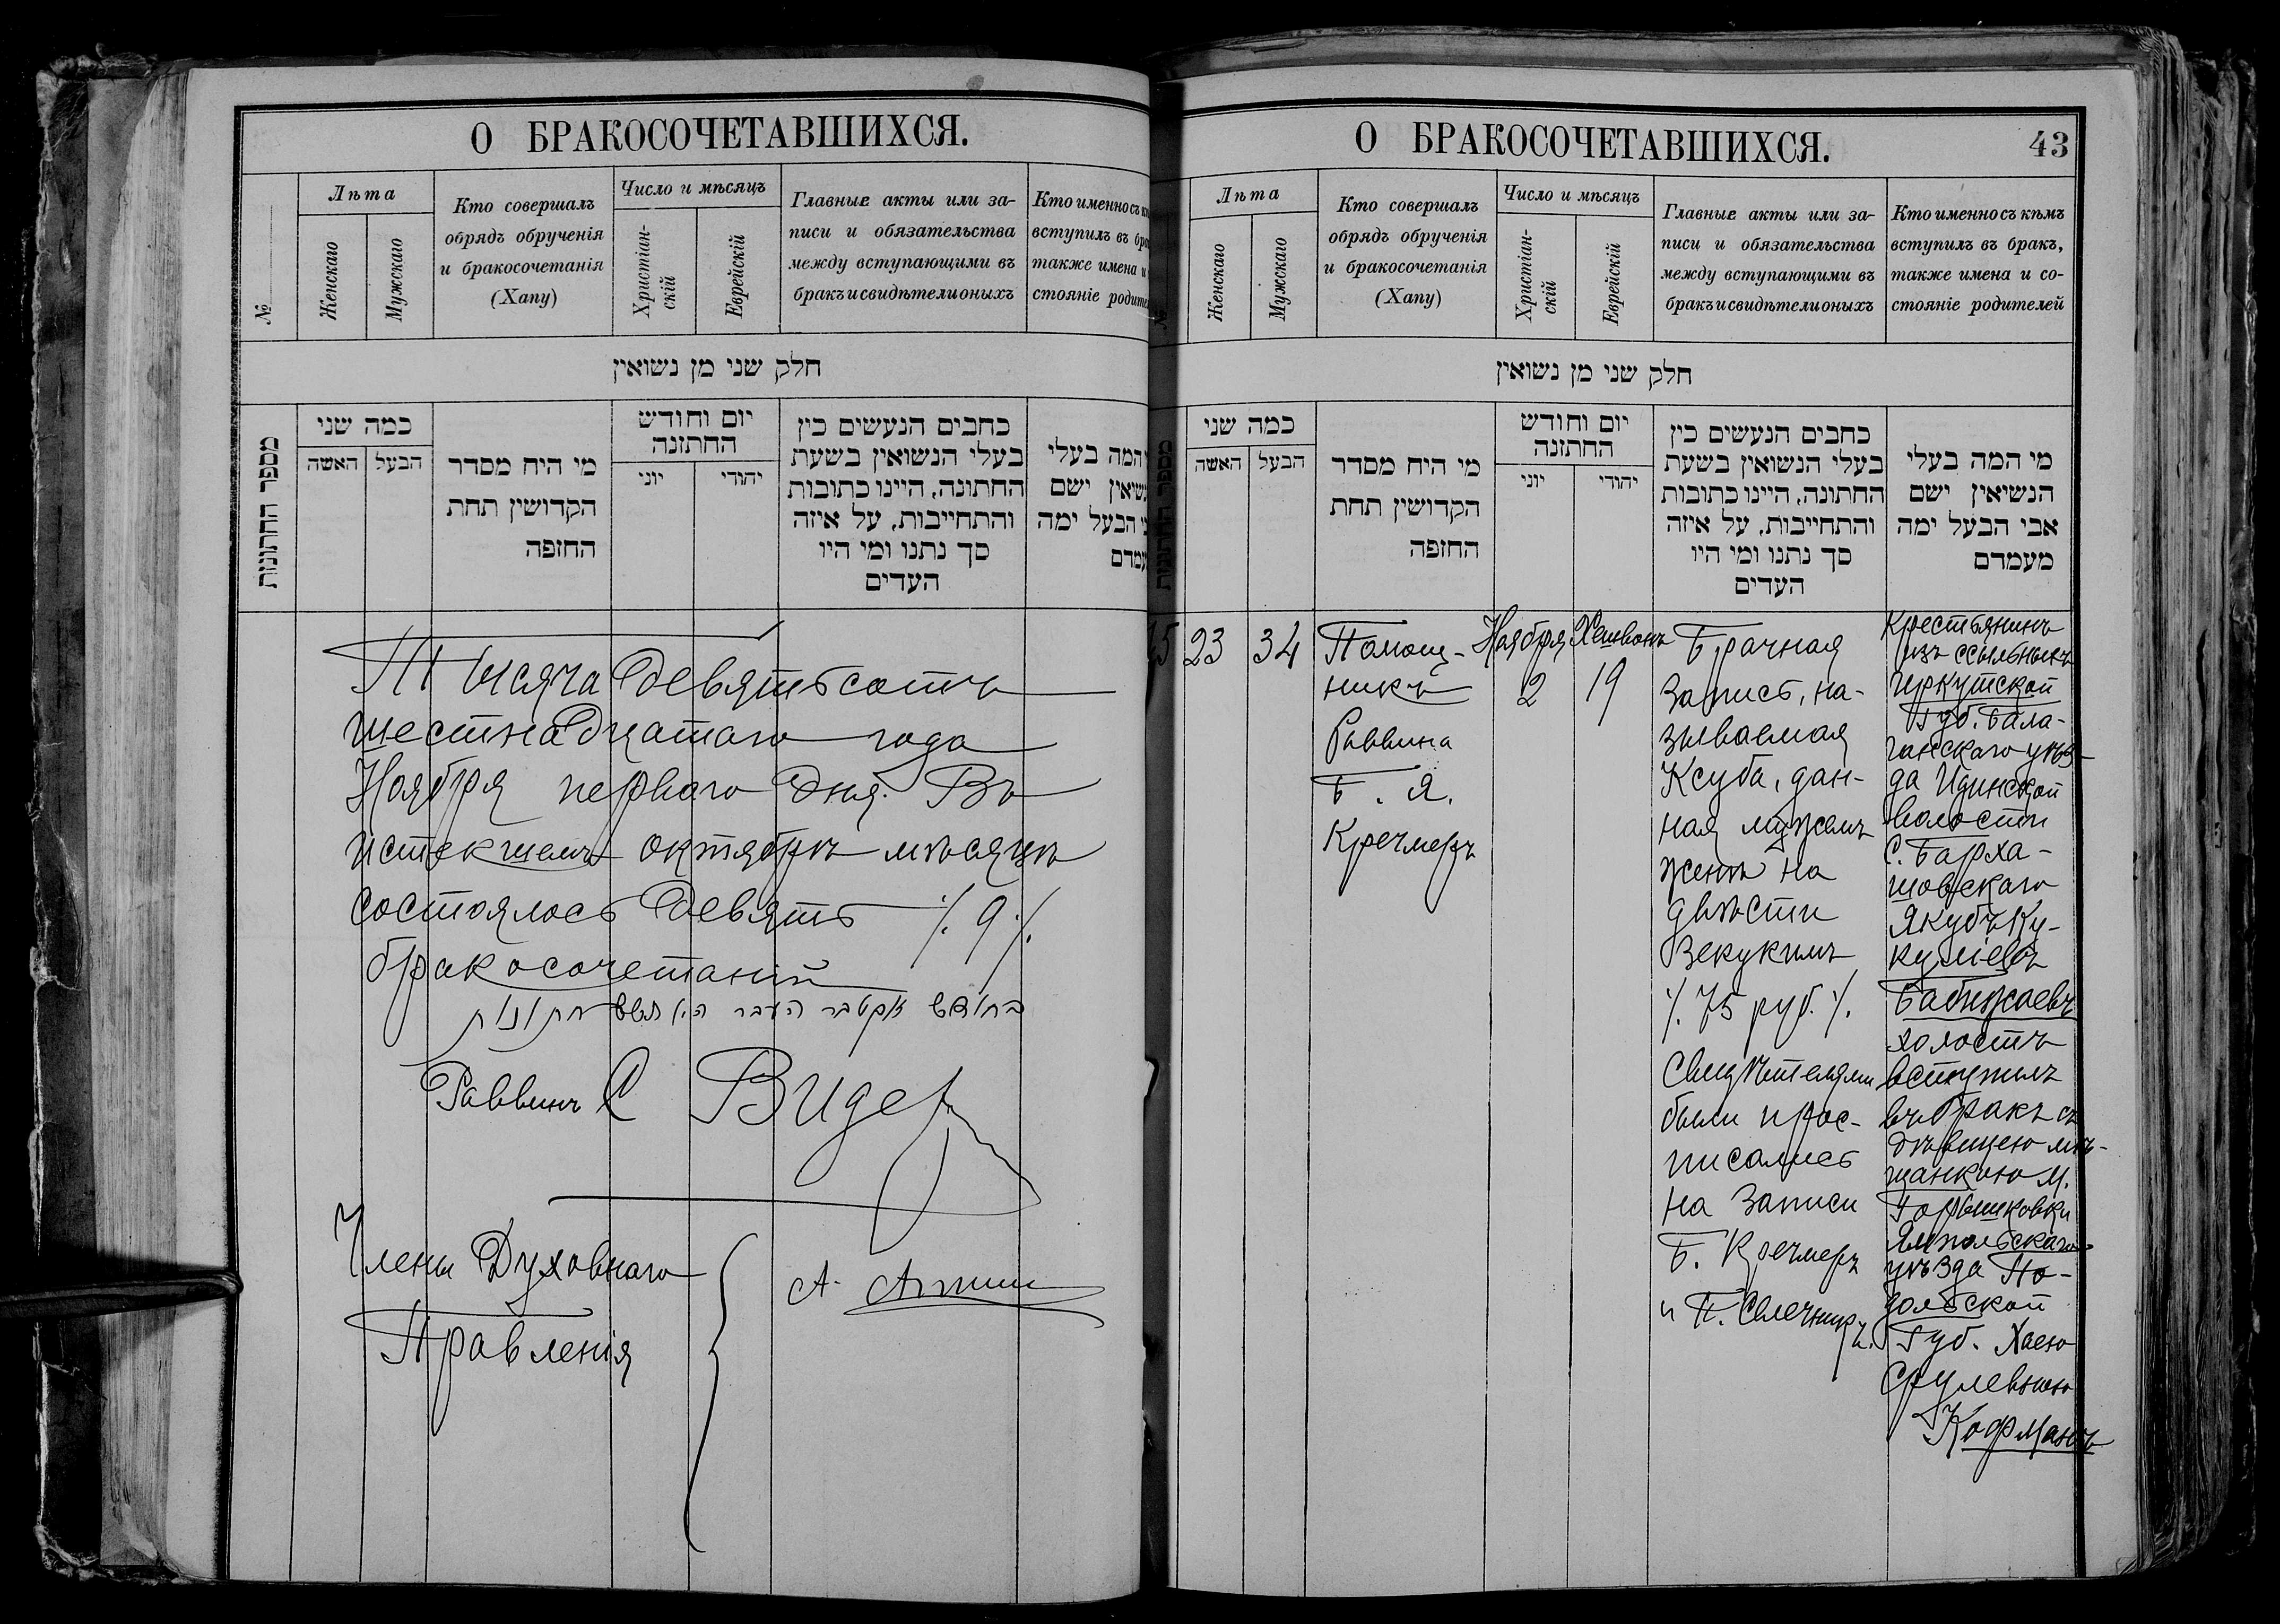 О БРАКОСОЧЕТАВШИХСЯ.
№
Лѣта
Женскаго
Мужскаго
Кто совершалъ
обрядъ обрученія
и бракосочетанія
(Хапу)
Число и мѣсяцъ
Христіан-
скій
Еврейскій
Главные акты или за-
писи и обязательства
между вступающими въ
бракъ и свидѣтели оныхъ
Кто именно съ
вступилъ въ
также имена и
стояніе
חלק שני מן נשואין
מספר החתונות
כמה שני
האשה
הבעל
מי היח מסדר
הקדושין תחת
החופה
יום וחודש
החתונה
יוני
יהודי
כחבים הנעשים כין
בעלי הנשואין בשעת
החתונה, היינו כתובות
והתחייבות, על איזה
סך נתנו ומי היו
העדים
המה בעלי
ישם
הבעל ימה
Тысяча девятьсотъ
шестнадцатаго года
Ноября перваго дня. Въ
истекшемъ октябрѣ мѣсяцѣ
состоялось девять ./. 9 ./.
бракосочетаній
בחודש אקטבר העבר היו תשע חתונות
Раввинъ С Видер
Члены Духовнаго
Правленія
А.
О БРАКОСОЧЕТАВШИХСЯ.
43
Лѣта
Женскаго
Мужскаго
Кто совершалъ
обрядъ обрученія
и бракосочетанія
(Хапу)
Число и мѣсяцъ
Христіан-
скій
Еврейскій
Главные акты или за-
писи и обязательства
между вступающими въ
бракъ и свидѣтели оныхъ
Кто именно съ кѣмъ
вступилъ въ бракъ,
также имена и со-
стояніе родителей
חלק שני מן נשואין
כמה שני
האשה
הבעל
מי היח מסדר
הקדושין תחת
החופה
יום וחודש
החתונה
יוני
יהודי
כחבים הנעשים כין
בעלי הנשואין בשעת
החתונה, היינו כתובות
והתחייבות, על איזה
סך נתנו ומי היו
העדים
מי המה בעלי
הנשיאין ישם
אבי הבעל ימה
מעמדם
23
34
Помощ-
никъ
Раввина
Б. Я.
Кречмеръ
Ноября
2
Хешвонъ
19
Брачная
запись, на-
зываемая
Ксуба, дан-
ная мужемъ
женѣ на
двѣсти
Зекукимъ
./. 75 руб. ./.
Свидѣтелями
были и рос-
писались
на записи
Б. Кречмеръ
и П. Свечникъ.
Крестьянинъ
изъ ссыльныхъ
Иркутской
Губ. Бала-
ганскаго уѣз-
да Идинской
волости
с. Барха-
товскаго
Якубъ Ку-
куліевъ
Бабижаевъ
холостъ
вступилъ
въ бракъ съ
дѣвицею мѣ-
щанкою м.
Горышковки
Ямпольскаго
уѣзда По-
дольской
Губ. Хаею
Срулевною
Кофманъ